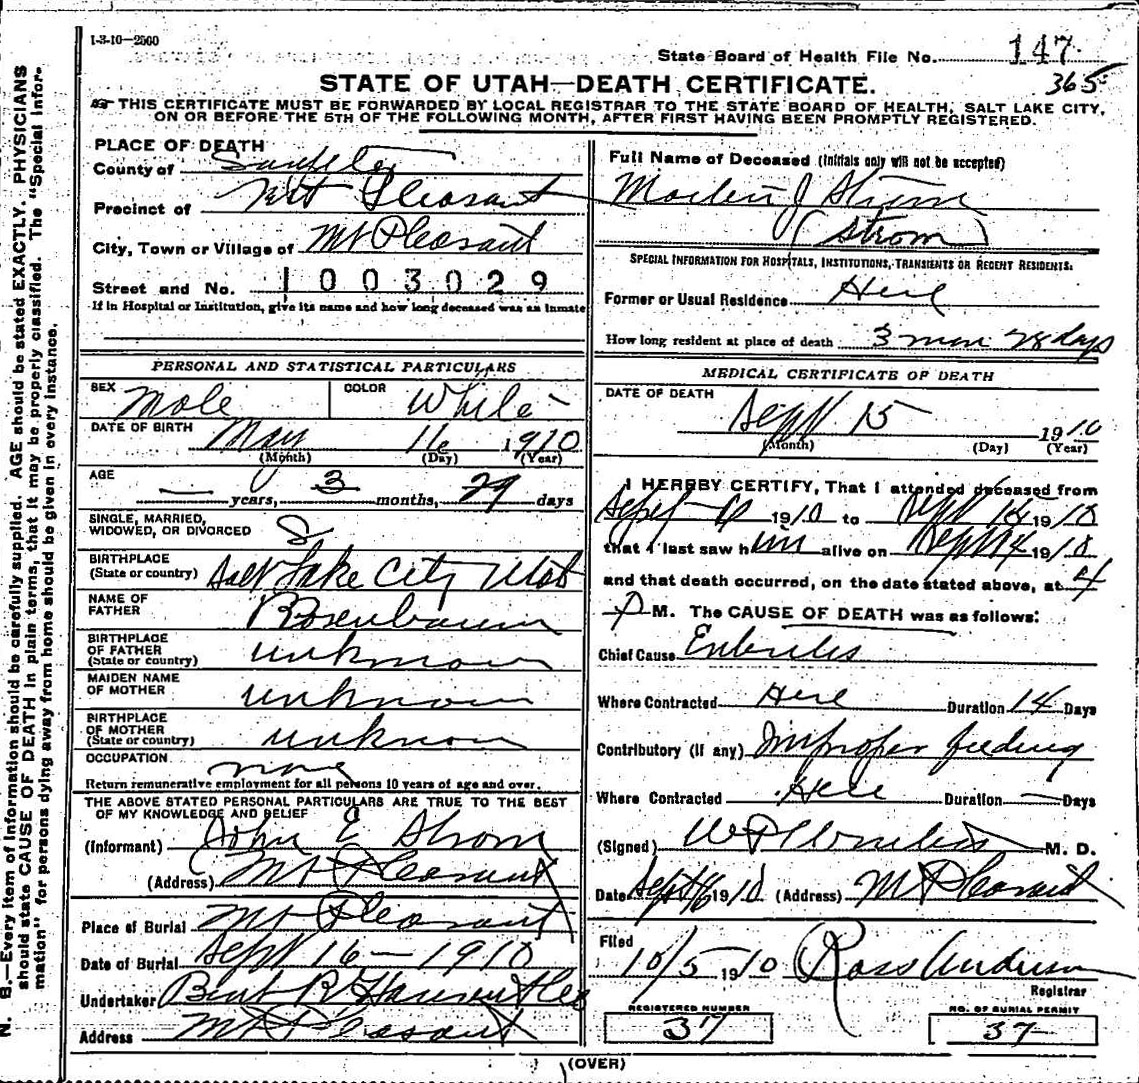 1-3-10—2500
State Board of Health File No. 147
365
STATE OF UTAH—DEATH CERTIFICATE.
THIS CERTIFICATE MUST BE FORWARDED BY LOCAL REGISTRAR TO THE STATE BOARD OF HEALTH, SALT LAKE CITY,
ON OR BEFORE THE 5TH OF THE FOLLOWING MONTH, AFTER FIRST HAVING BEEN PROMPTLY REGISTERED.
N. B.—Every item of information should be carefully supplied. AGE should be stated EXACTLY. PHYSICIANS
should state CAUSE OF DEATH in plain terms, that it may be properly classified. The "Special Infor-
mation" for persons dying away from home should be given in every instance.
PLACE OF DEATH
County of Sanpete
Precinct of Mt Pleasant
City, Town or Village of Mt Pleasant
Street and No. 1003029
If in Hospital or Institution, give its name and how long deceased was an inmate
PERSONAL AND STATISTICAL PARTICULARS
SEX Male COLOR White
DATE OF BIRTH May 16 1910
(Month) (Day) (Year)
AGE — years, 3 months, 29 days
SINGLE, MARRIED,
WIDOWED, OR DIVORCED S
BIRTHPLACE
(State or country) Salt Lake City Utah
NAME OF
FATHER Rosenbaum
BIRTHPLACE
OF FATHER
(State or country) unknown
MAIDEN NAME
OF MOTHER unknown
BIRTHPLACE
OF MOTHER
(State or country) unknown
OCCUPATION none
Return remunerative employment for all persons 10 years of age and over.
THE ABOVE STATED PERSONAL PARTICULARS ARE TRUE TO THE BEST
OF MY KNOWLEDGE AND BELIEF
(Informant) John E Strom
(Address) Mt Pleasant
Place of Burial Mt Pleasant
Date of Burial Sept 16—1910
Undertaker Bent R Hansen
Address Mt Pleasant
Full Name of Deceased (Initials only will not be accepted)
J
(Strom)
SPECIAL INFORMATION FOR HOSPITALS, INSTITUTIONS, TRANSIENTS OR RECENT RESIDENTS.
Former or Usual Residence Here
How long resident at place of death 3 mon 28 days
MEDICAL CERTIFICATE OF DEATH
DATE OF DEATH
Sept 15 1910
(Month) (Day) (Year)
I HEREBY CERTIFY, That I attended deceased from
Sept 1910 to Sept 14 1910
that I last saw him alive on Sept 14 1910
and that death occurred, on the date stated above, at 4
P M. The CAUSE OF DEATH was as follows:
Chief Cause
Where Contracted Here Duration 14 Days
Contributory (if any) Improper feeding
Where Contracted Here Duration — Days
(Signed) M. D.
Date Sept 16 1910 (Address) Mt Pleasant
Filed
10/5 1910 Ross Anderson
Registrar
REGISTERED NUMBER
37
NO. OF BURIAL PERMIT
37
(OVER)